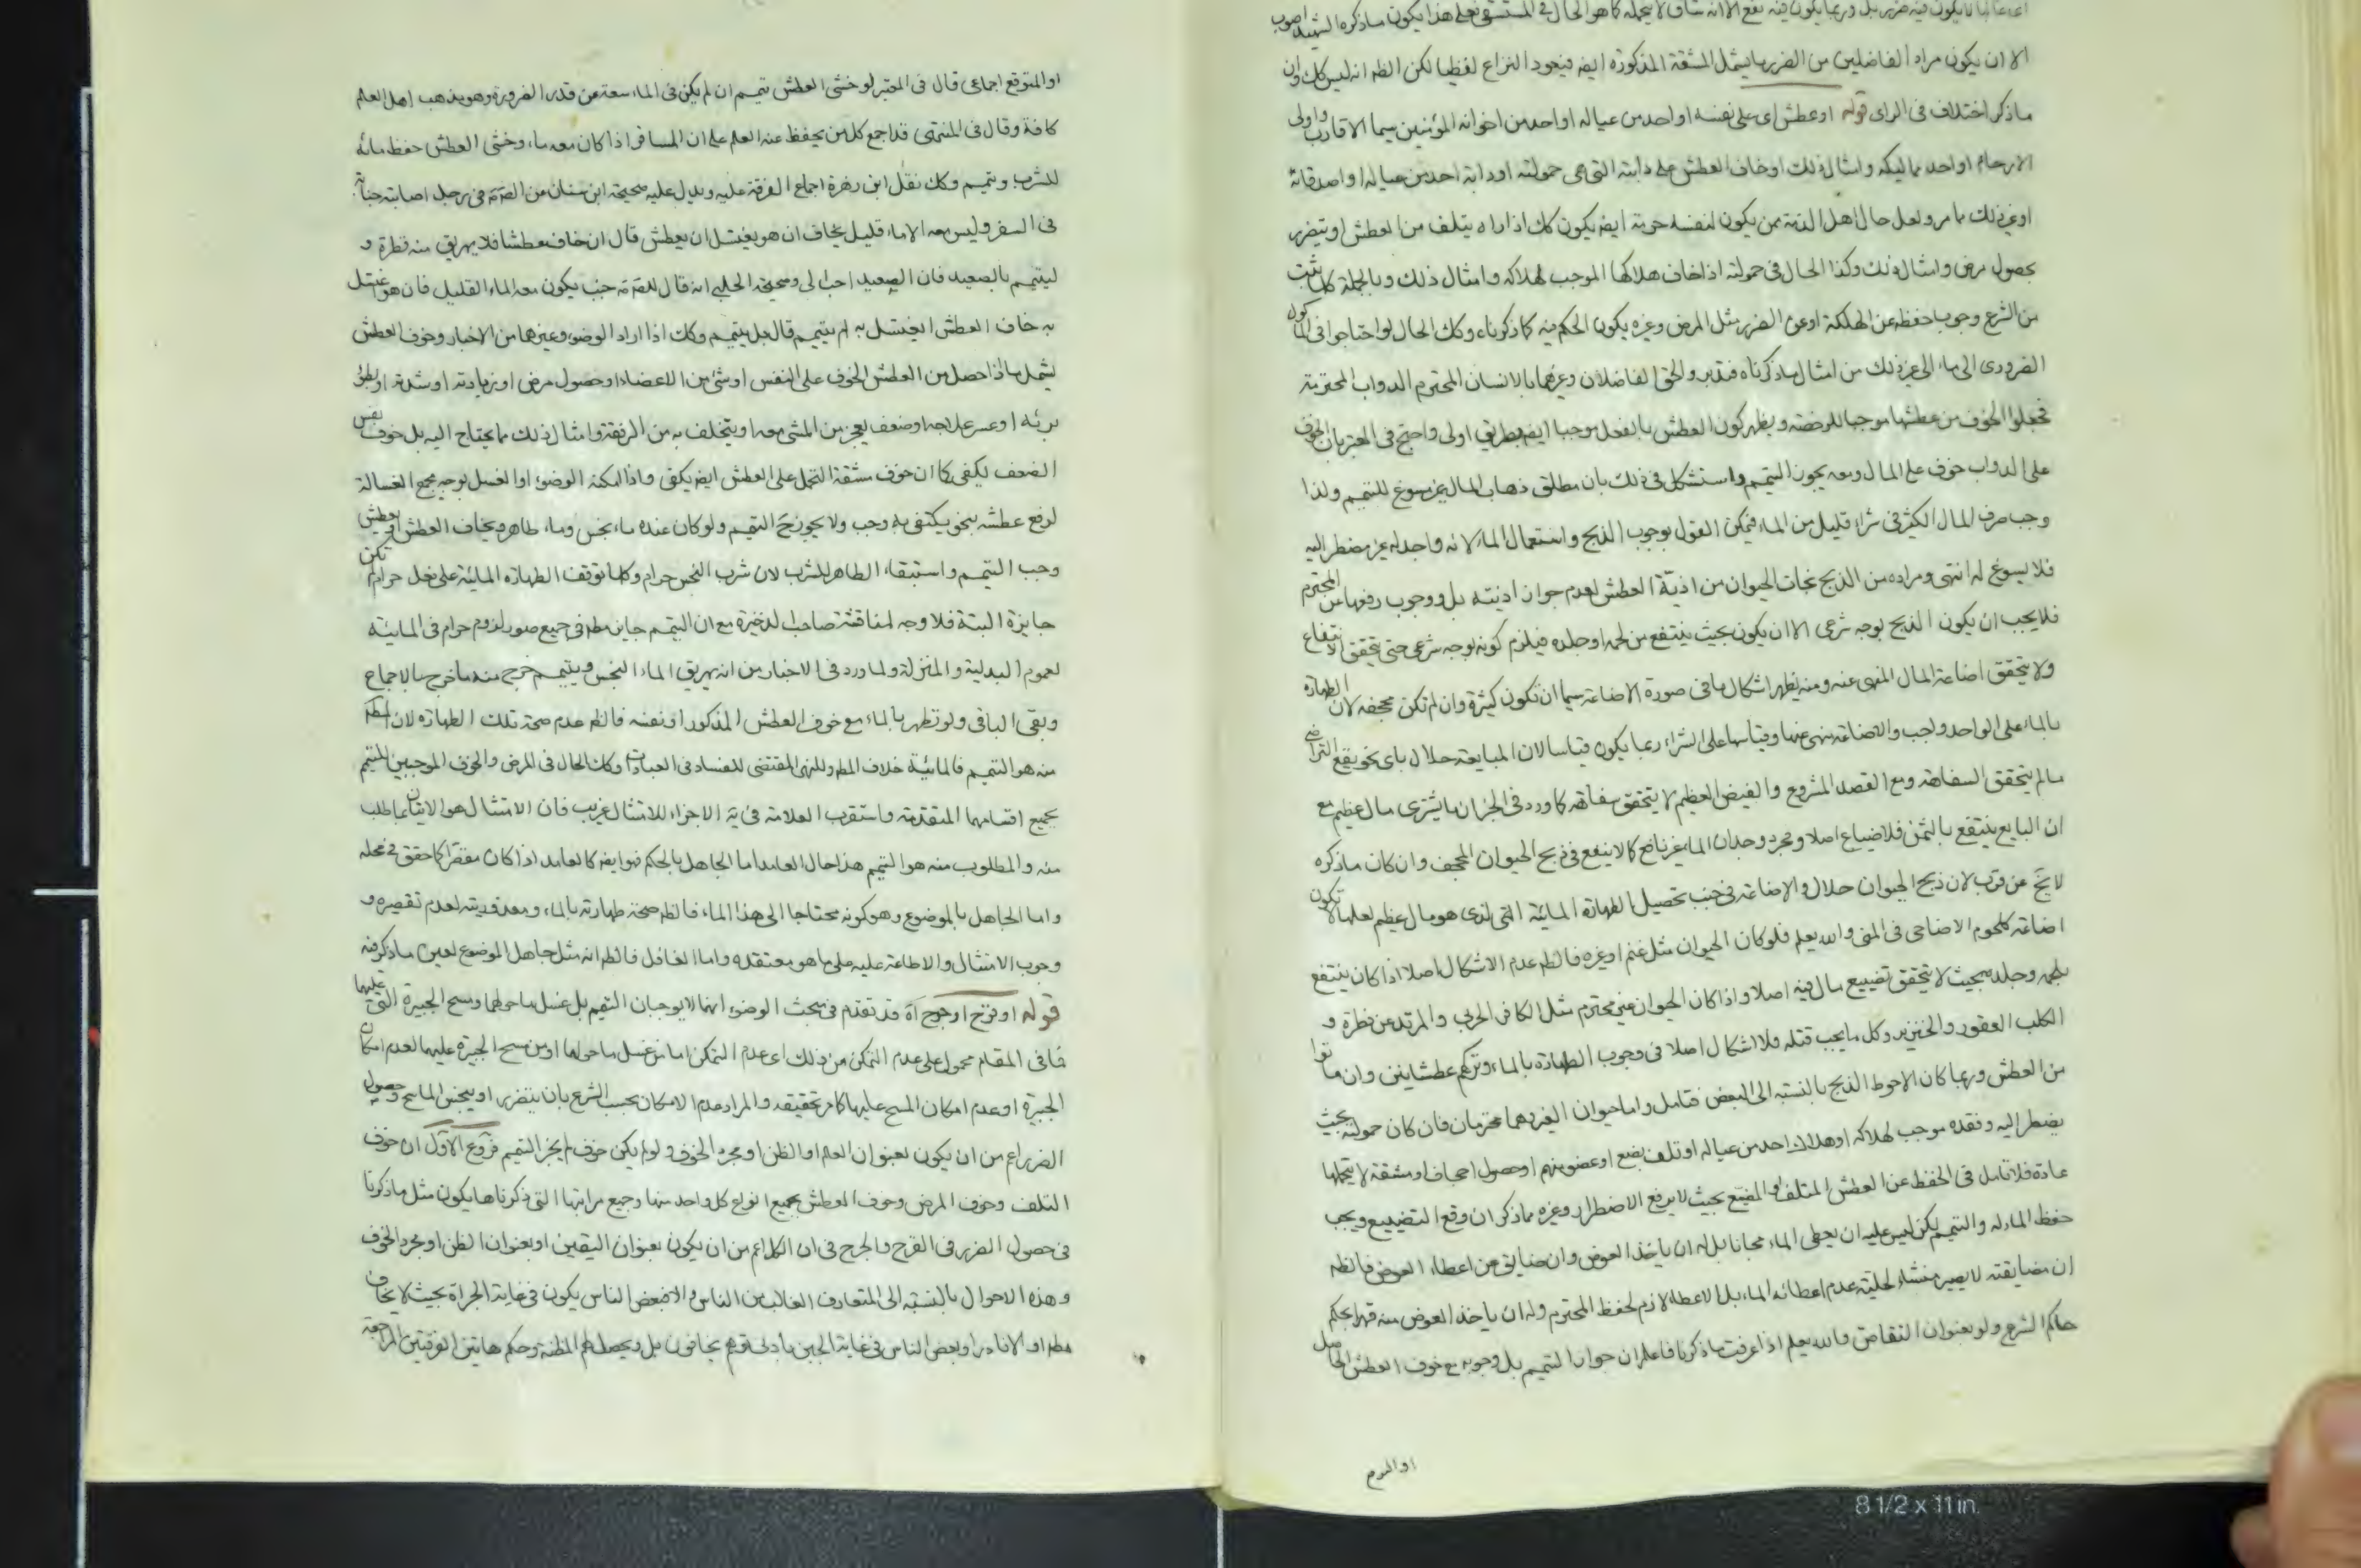 الا ان يكون مراد الفاضلين من الضرر ما يشمل المشقة المذكورة ايضه فيعود النزاع لفظيا لكن الظه انه ليس كك وان
ما ذكر اختلاف في الراى قوله او عطش اى على نفسه او احد من عياله او احد من اخوانه المؤمنين سيما الاقارب واولى
الارحام او احد مماليكه وامثال ذلك او خاف العطش على دابته التى هى حمولته او دابة احد من عياله او اصدقائه
او غير ذلك مما مر ولعل حال اهل الذمة ممن يكون لنفسه حرمة ايضه يكون كك اذا راه يتلف من العطش او يتضرر
بحصول مرض وامثال ذلك وكذا الحال في حمولته اذا خاف هلاكها الموجب لهلاكه وامثال ذلك وبالجملة كلما ثبت
من الشرع وجوب حفظه عن الهلكة او عن الضرر مثل المرض وغيره يكون الحكم فيه كما ذكرناه وكك الحال لو احتاجوا في الماكول
الضرورى الى ماء الى غير ذلك من امثال ما ذكرناه فتدبر والحق الفاضلان وغيرهما بالانسان المحترم الدواب المحترمة
فجعلوا الخوف من عطشها موجبا للرخصة ويظهر كون العطش بالفعل موجبا ايضه بطريق اولى واحتج في المعتبر بان الخوف
على الدواب خوف على المال ومعه يجوز التيمم واستشكل في ذلك بان مطلق ذهاب المال غير مسوغ للتيمم ولذا
وجب صرف المال الكثير في شراء قليل من الماء فيمكن القول بوجوب الذبح واستعمال الماء لانه واجد له غير مضطر اليه
فلا يسوغ له انتهى ومراده من الذبح نجات الحيوان من اذية العطش لعدم جواز اذيته بل ووجوب رفعها عن المحترم
فلا يجب ان يكون الذبح بوجه شرعى الا ان يكون بحيث ينتفع من لحمه او جلده فيلزم كونه بوجه شرعى حتى يتحقق الانتفاع
ولا يتحقق اضاعة المال المنهى عنه ومنه يظهر اشكال ما في صورة الاضاعة سيما ان تكون كثيرة وان لم تكن مجحفه لان الطهارة
بالماء على الواجد واجب والاضاعة منهى عنها وقياسها على الشراء ربما يكون قياسا لان المبايعة حلال باى نحو يقع التراضى
ما لم يتحقق السفاهة ومع القصد المشروع والغيض العظيم لا يتحقق سفاهة كما ورد في الخبر ان ما يشترى مال عظيم مع
ان البايع ينتفع بالثمن فلا ضياع اصلا ومجرد وجدان الماء غير نافع كما لا ينفع في ذبح الحيوان المجحف وان كان ما ذكره
لا يخ عن قرب لان ذبح الحيوان حلال والاضاعة في جنب تحصيل الطهارة المائية التى لذى هو مال عظيم لعلها لا تكون
اضاعة كلحوم الاضاحى في المنى والله يعلم فلو كان الحيوان مثل غنم او غيره فالظه عدم الاشكال اصلا اذا كان ينتفع
بلحمه وجلده بحيث لا يتحقق تضييع مال فيه اصلا واذا كان الحيوان غير محترم مثل الكافر الحربى والمرتد عن فطرة و
الكلب العقور والخنزير وكل ما يجب قتله فلا اشكال اصلا في وجوب الطهارة بالماء وتركهم عطشانين وان ماتوا
من العطش وربما كان الاحوط الذبح بالنسبة الى البعض فتامل واما حيوان الغير وهما محترمان فان كان حمولته بحيث
يضطر اليه وفقده موجب لهلاكه او هلاك احد من عياله او تلف بضع او عضو منهم او حصول اجحاف او مشقة لا يتحملها
عادة فلا تامل في الحفظ عن العطش المتلف او المضيع بحيث لا يرفع الاضطرار وغيره مما ذكر ان وقع التضييع ويجب
حفظ الماء له والتيمم لكن ليس عليه ان يعطى الماء مجانا بل له ان ياخذ العوض وان ضايق عن اعطاء العوض فالظه
ان مضايقته لا يصير منشاء لحلية عدم اعطائه الماء بل الاعطاء لازم لحفظ المحترم وله ان ياخذ العوض منه قهرا بحكم
حاكم الشرع ولو بعنوان التقاص والله يعلم اذا عرفت ما ذكرنا فاعلم ان جواز التيمم بل وجوبه مع خوف العطش الحاصل
او المتوقع اجماعى قال في المعتبر لو خشى العطش تيمم ان لم يكن في الماء سعة عن قدر الضرورة وهو مذهب اهل العلم
كافة وقال في المنتهى قد اجمع كل من يحفظ عنه العلم على ان المسافر اذا كان معه ماء وخشى العطش حفظ مائه
للشرب وتيمم وكك نقل ابن زهرة اجماع الفرقة عليه ويدل عليه صحيحة ابن سنان عن الصه في رجل اصابته جنابة
في السفر وليس معه الا ماء قليل يخاف ان هو يغتسل ان يعطش قال ان خاف عطشا فلا يهريق منه قطرة و
ليتيمم بالصعيد فان الصعيد احب الى وصحيحة الحلبى انه قال للصه جنب يكون معه الماء القليل فان هو اغتسل
به خاف العطش ايغتسل به ام يتيمم قال بل يتيمم وكك اذا اراد الوضوء وغيرها من الاخبار وخوف العطش
يشمل ما اذا حصل من العطش الخوف على النفس او شئ من الاعضاء او حصول مرض او زيادته او شدته او بطؤ
برئه او عسر علاجه او ضعف يعجز من المشى معه او يتخلف به من الرفقة وامثال ذلك مما يحتاج اليه بل خوف نفس
الضعف يكفى كما ان خوف مشقة التحمل على العطش ايضه يكفى واذا امكنه الوضوء او الغسل بوجه يجمع الغسالة
لرفع عطشه بنحو يكتفى به وجب ولا يجوز ح التيمم ولو كان عنده ماء نجس وماء طاهر ويخاف العطش او يعطش
وجب التيمم واستبقاء الطاهر للشرب لان شرب النجس حرام وكلما توقف الطهارة المائية على فعل حرام لم تكن
جايزة البتة فلا وجه لمناقشة صاحب الذخيرة مع ان التيمم جايز مطه في جميع صور لزوم حرام في المائية
لعموم البدلية والمنزلة ولما ورد في الاخبار من انه يهريق الماء النجس ويتيمم خرج منه ما خرج بالاجماع
وبقى الباقى ولو تطهر بالماء مع خوف العطش المذكور او نفسه فالظه عدم صحة تلك الطهارة لان المط
منه هو التيمم فالمائية خلاف المط وللنهى المقتضى للفساد في العبادات وكك الحال في المرض والخوف الموجبين للتيمم
بجميع اقسامهما المتقدمة واستقرب العلامة في يه الاجزاء للامتثال غريب فان الامتثال هو الاتيان بما طلب
منه والمطلوب منه هو التيمم هذا حال العامد اما الجاهل بالحكم فهو ايضه كالعامد اذا كان مقصرا كما حقق في محله
واما الجاهل بالموضوع وهو كونه محتاجا الى هذا الماء فالظه صحة طهارته بالماء ومعذوريته لعدم تقصيره و
وجوب الامتثال والاطاعة عليه على ما هو معتقده واما الغافل فالظه انه مثل جاهل الموضوع لعين ما ذكر فيه
قوله او قرح او جرح آه قد تقدم في مبحث الوضوء انهما لا يوجبان التيمم بل غسل ما حولهما ومسح الجبيرة التى عليهما
فما في المقام محمول على عدم التمكن من ذلك اى عدم التمكن اما من غسل ما حولها او من مسح الجبيرة عليهما لعدم امكان
الجبيرة او عدم امكان المسح عليها كما مر تحقيقه والمراد عدم الامكان بحسب الشرع بان يتضرر او ينجس الماسح وحصول
الضرر اعم من ان يكون بعنوان العلم او الظن او مجرد الخوف ولو لم يكن خوف لم يجز التيمم فروع الاول ان خوف
التلف وخوف المرض وخوف العطش بجميع انواع كل واحد منها وجميع مراتبها التى ذكرناها يكون مثل ما ذكرنا
في حصول الضرر في القرح والجرح في ان الكل اعم من ان يكون بعنوان اليقين او بعنوان الظن او مجرد الخوف
وهذه الاحوال بالنسبة الى المتعارف الغالب من الناس والا فبعض الناس يكون في غاية الجراة بحيث لا يخاف
مطه او الا نادرا وبعض الناس في غاية الجبن بادنى توهم يخافون بل ويحصل لهم المظنة وحكم هاتين الفرقتين المراجعة